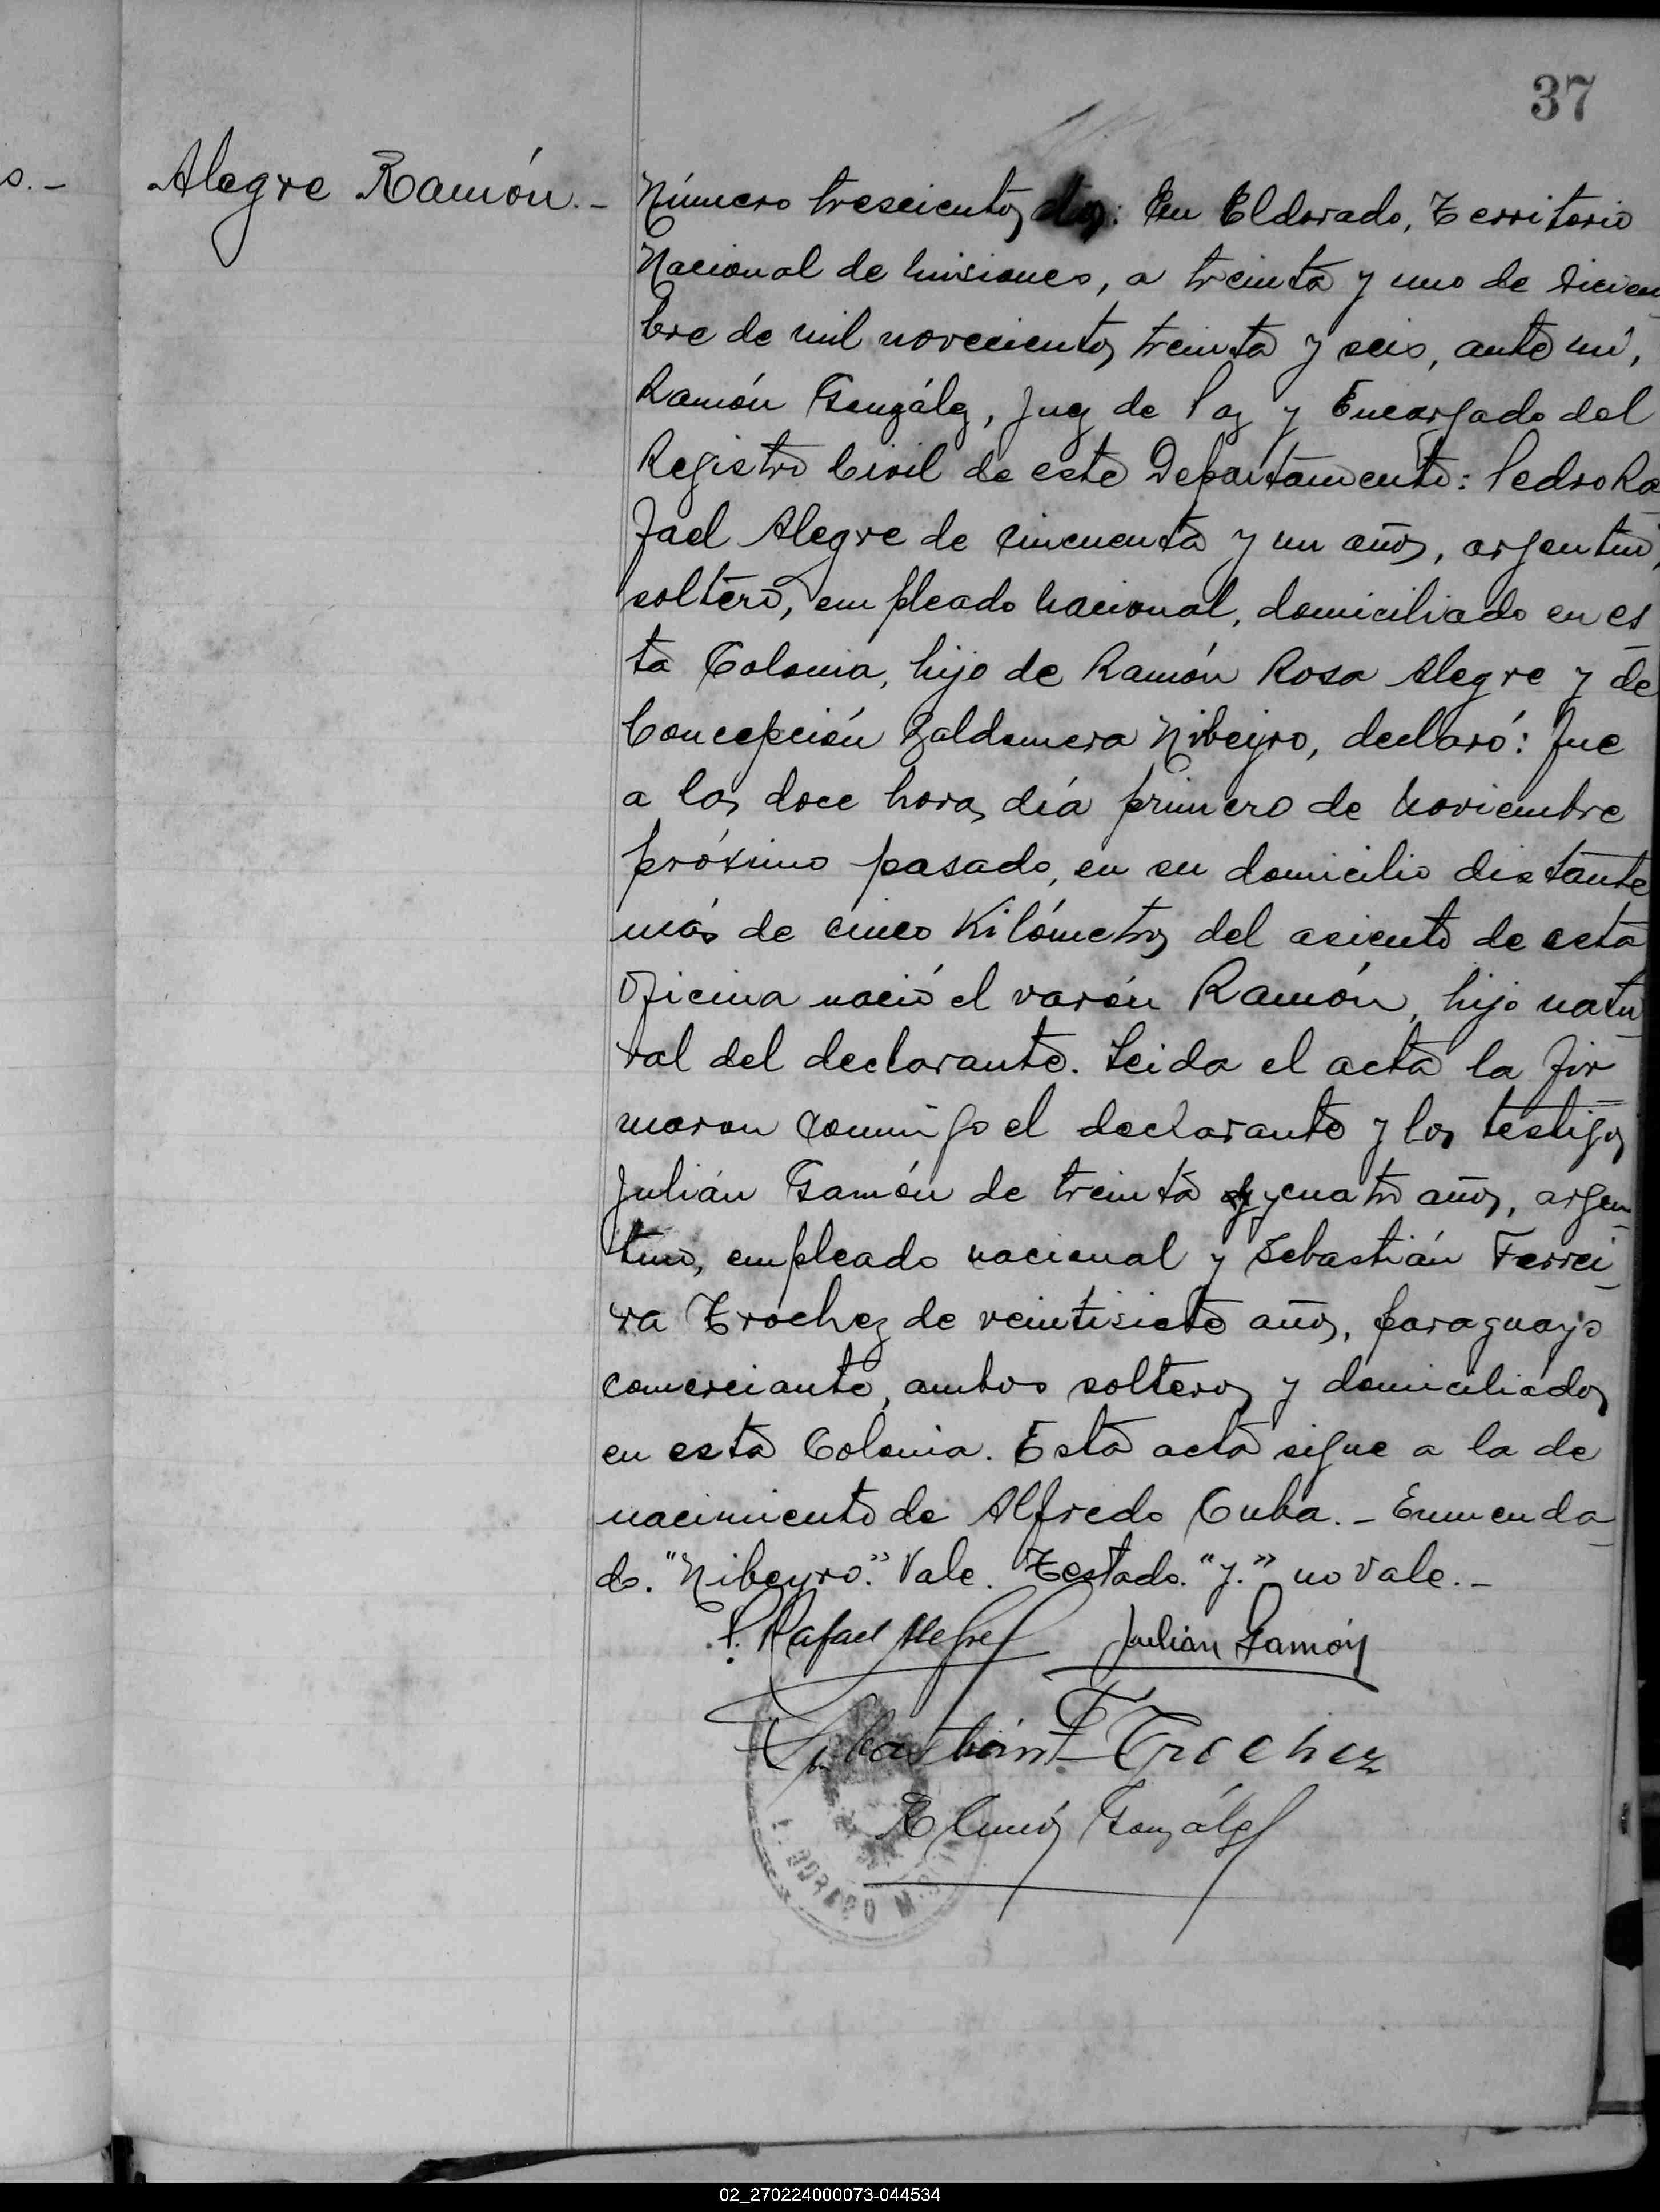 37
s.-
Alegre Ramón.-
Número trescientos dos: En Eldorado, Territorio
Nacional de Misiones, a treinta y uno de diciem
bre de mil novecientos treinta y seis, ante mí,
Ramón González, Juez de Paz y Encargado del
Registro Civil de este Departamento: Pedro Ra
fael Alegre de cincuenta y un años, argentino,
soltero, empleado nacional, domiciliado en es
ta Colonia, hijo de Ramón Rosa Alegre y de
Concepción Baldomera Nibeyro, declaró: Que
a las doce horas día primero de Noviembre
próximo pasado, en su domicilio distante
más de cinco Kilómetros del asiento de esta
Oficina nació el varón Ramón, hijo natu
ral del declarante. Leida el acta la fir
maron conmigo el declarante y los testigos
Julián Gamón de treinta y y cuatro años, argen
tino, empleado nacional y Sebastián Ferrei
ra Trochez de veintisiete años, paraguayo
comerciante, ambos solteros y domiciliados
en esta Colonia. Esta acta sigue a la de
nacimiento de Alfredo Cuba.- Enmenda
do. "Nibeyro." Vale. Testado. "y." no vale.-
P. Rafael Alegre
Julián Gamón
Sebastián F. Trochez
Ramón González
ELDORADO
02_270224000073-044534